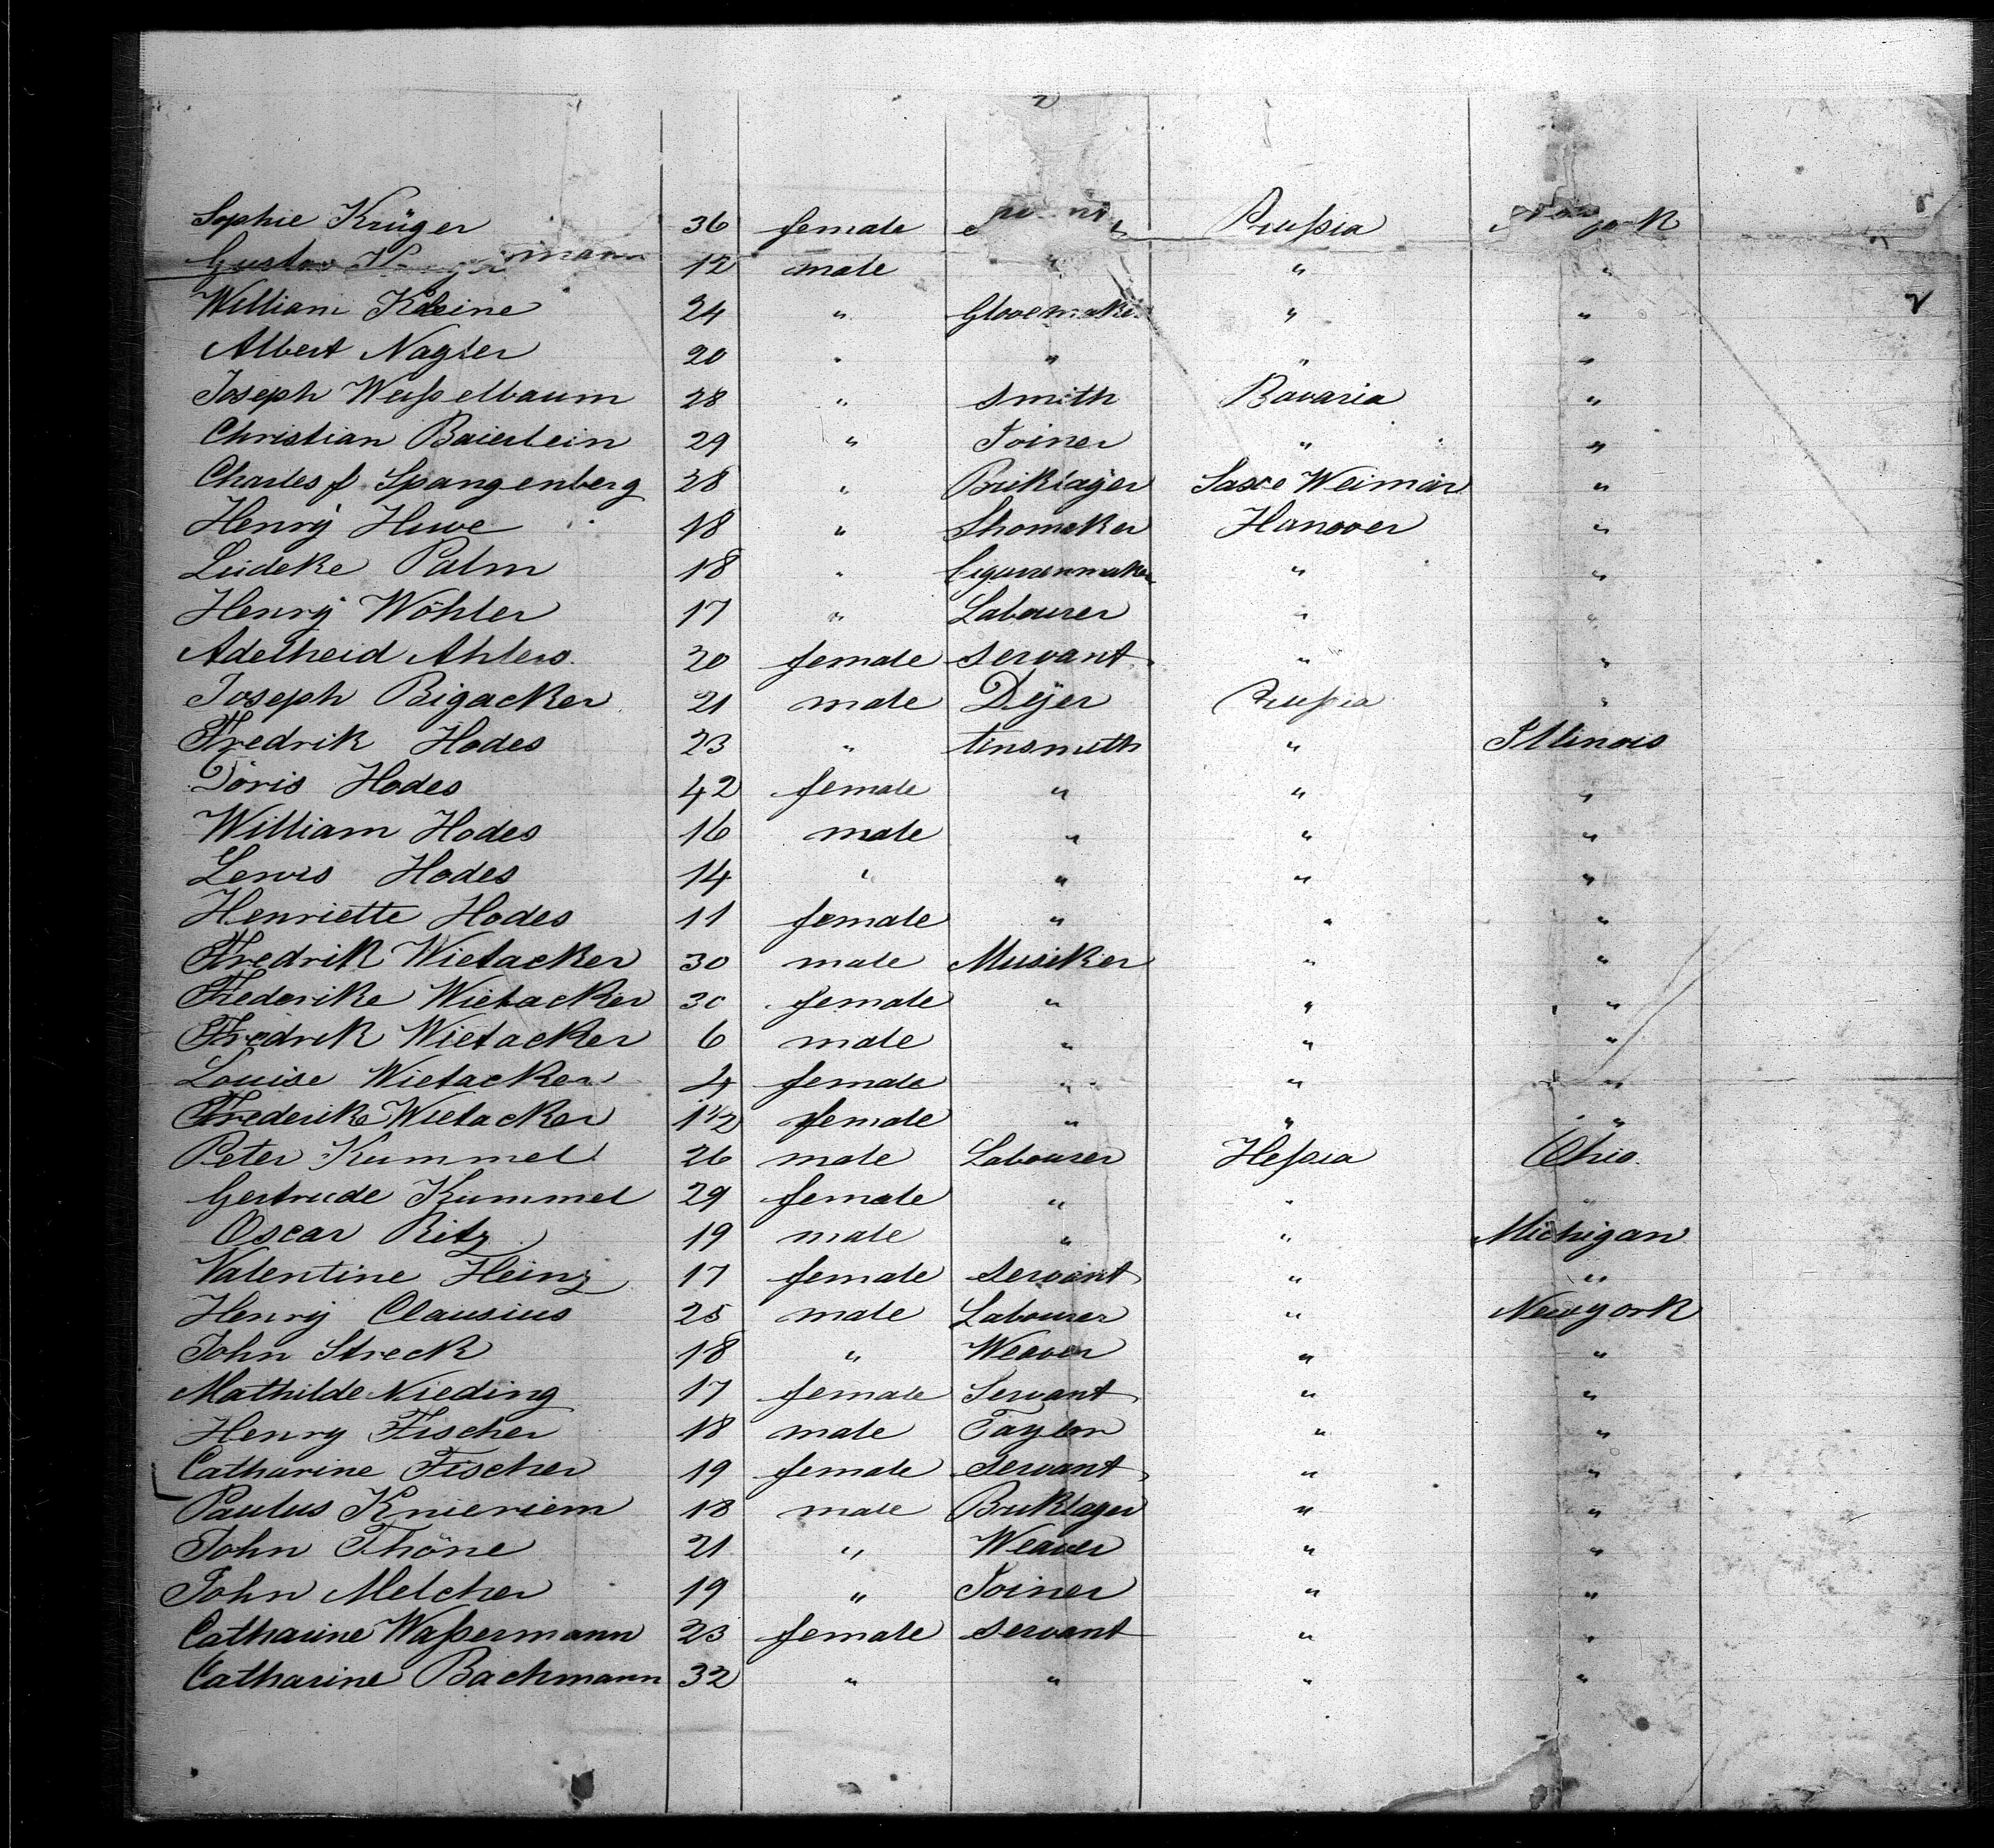 2
Sophie Krüger 36 female Prußia
Gustav mann 12 male " " "
William Kleine 24 " Glovemaker " "
Albert Nagler 20 " " " "
Joseph Weißelbaum 28 " Smith Bavaria "
Christian Baierlein 29 " Joiner " "
Charles f Spangenberg 28 " Briklayer Saxe Weimar "
Henry Huwe 18 " Shomaker Hanover "
Lüdeke Palm 18 " Cigarrenmaker " "
Henry Wöhler 17 " Labourer " "
Adelheid Ahlers 20 female servant " "
Joseph Bigacker 21 male Dÿer Prußia "
Fredrik Hodes 23 " tinsmith " Illinois
Doris Hodes 42 female " " "
William Hodes 16 male " " "
Lewis Hodes 14 " " " "
Henriette Hodes 11 female " " "
Fredrik Wietacker 30 male Musiker " "
Frederike Wietacker 30 female " " "
Fredrik Wietacker 6 male " " "
Louise Wietacker 4 female " " "
Frederike Wietacker 1 1/2 female " " "
Peter Kummel 26 male Labourer Heßia Ohio
Gertrude Kummel 29 female " " "
Oscar Ritz 19 male " " Michigan
Valentine Heinz 17 female servant " "
Henry Clausius 25 male Labourer " Newyork
John Streck 18 " Weaver " "
Mathilde Nieding 17 female Servant " "
Henry Fischer 18 male Taylor " "
Catharine Fischer 19 female Servant " "
Paulus Knieriem 18 male Briklayer " "
John Thöne 21 " Weaver " "
John Melcher 19 " Joiner " "
Catharine Waßermann 23 female servant " "
Catharine Bachmann 32 " " " "